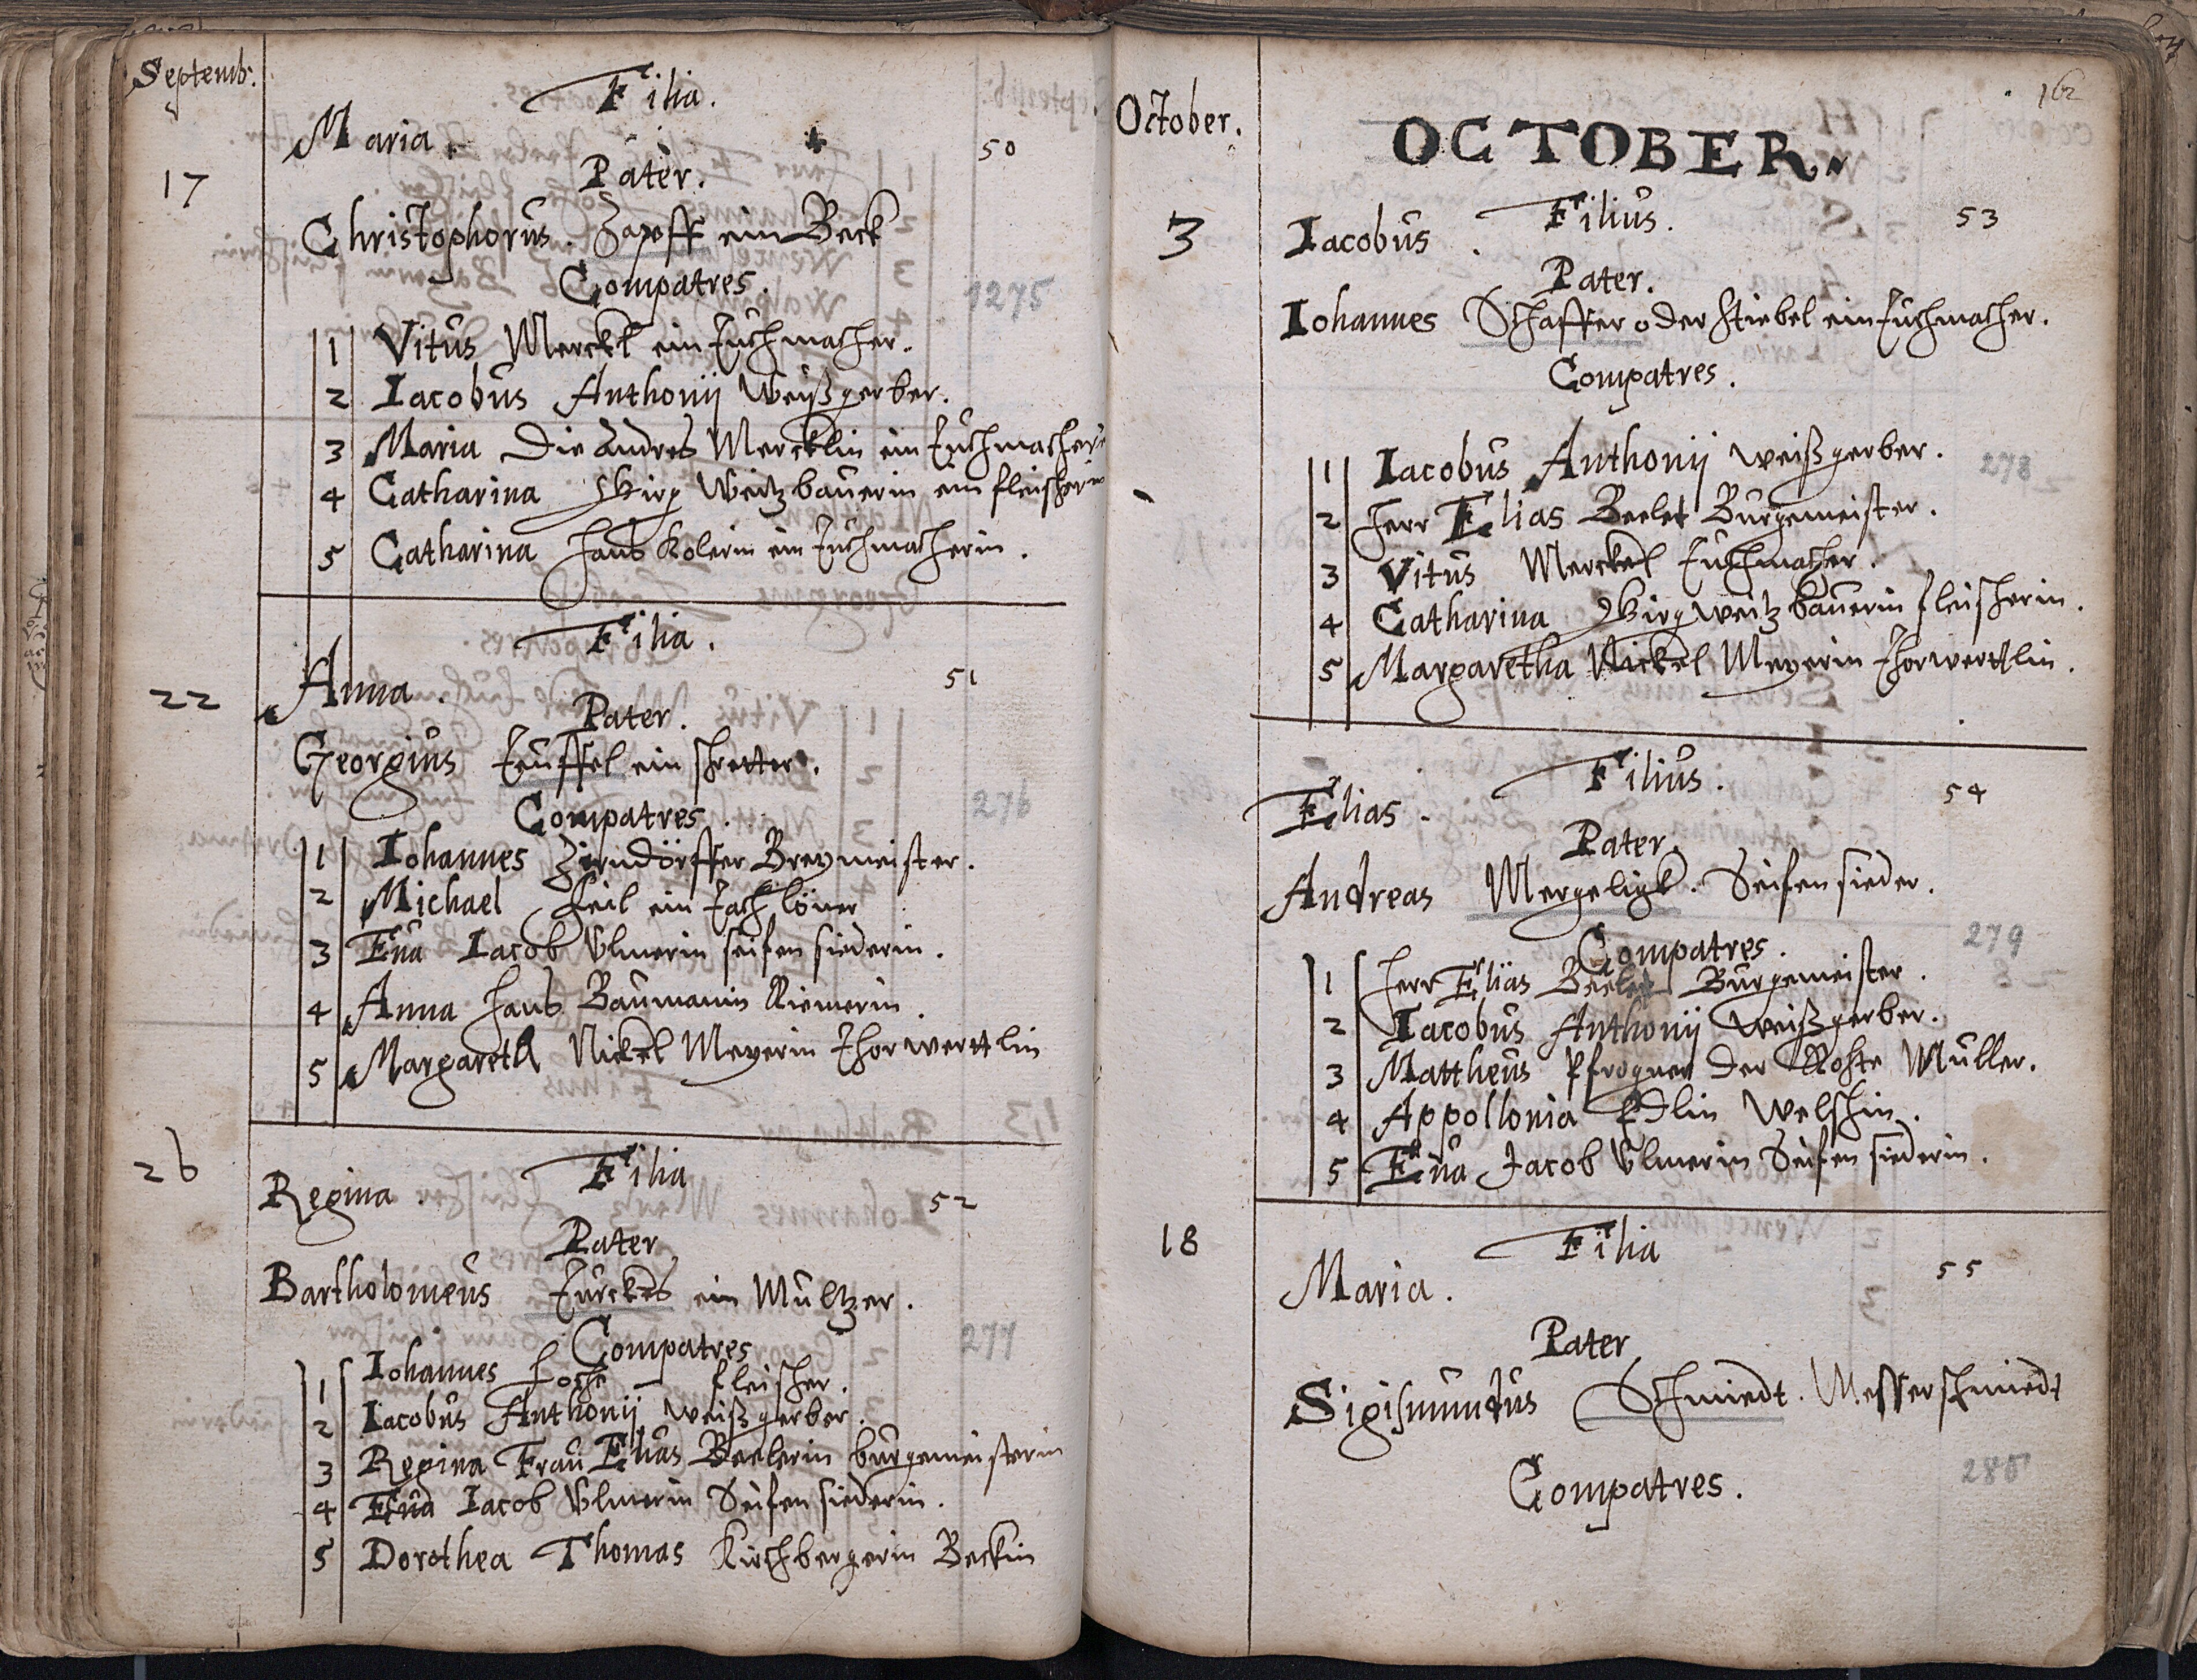 Septemb.
Filia.
Maria.
50
17
Pater.
Christophorus. Zapoff ein Beck
Compatres.
1275
1 Vitus Merckl ein Tuchmacher.
2 Iacobus Anthonij Weißgerber.
3 Maria Die Andres Mercklin ein Tuchmacherin
4 Catharina Girg Weitzbauerin ein fleischerin
5 Catharina Hans Kolerin ein Tuchmacherin.
Filia.
Anna.
51
22
Pater.
Georgius Teuffel ein schretter.
Compatres.
276
1 Iohannes Zirndörffer Breymeister.
2 Michael Keil ein Tachlöner
3 Eua Iacob Ulmerin seifensiederin.
4 Anna Hans Baumanin Riemerin.
5 Margareth Nickel Meyerin Thorwerttlin
26
Filia
Regina.
52
Pater
Bartholomeus Türckes ein Mültzer.
Compatres
277
1 Iohannes fleischer.
2 Iacobus Anthonij weißgerber.
3 Regina Frau Elias Beelerin burgemeisterin
4 Eua Iacob Ulmerin Seifensiederin.
5 Dorothea Thomas Kirchbergerin Beckin
October.
162
OCTOBER.
3
Filius.
53
Iacobus.
Pater.
Iohannes Schaffer oder Stiebel ein Tuchmacher.
Compatres.
1 Iacobus Anthonij weißgerber.
278
2 Herr Elias Beelet Burgemeister.
3 Vitus Merckel Tuchmacher.
4 Catharina Girg weitzbauerin fleischerin.
5 Margaretha Nickel Meyerin Thorwerttlin.
Filius.
54
Elias.
Pater.
Andreas Mergeligk. Seifensieder.
Compatres.
279
1 Herr Elias Beelet Burgemeister.
2 Iacobus Anthonij weißgerber.
3 Mattheus Pfrogner der Rohte Müller.
4 Appollonia Edlin Welschin.
5 Eua Jacob Ulmerin Seifensiederin.
18
Filia
55
Maria.
Pater
Sigismundus Schmiedt. Messerschmiedt
Compatres.
280